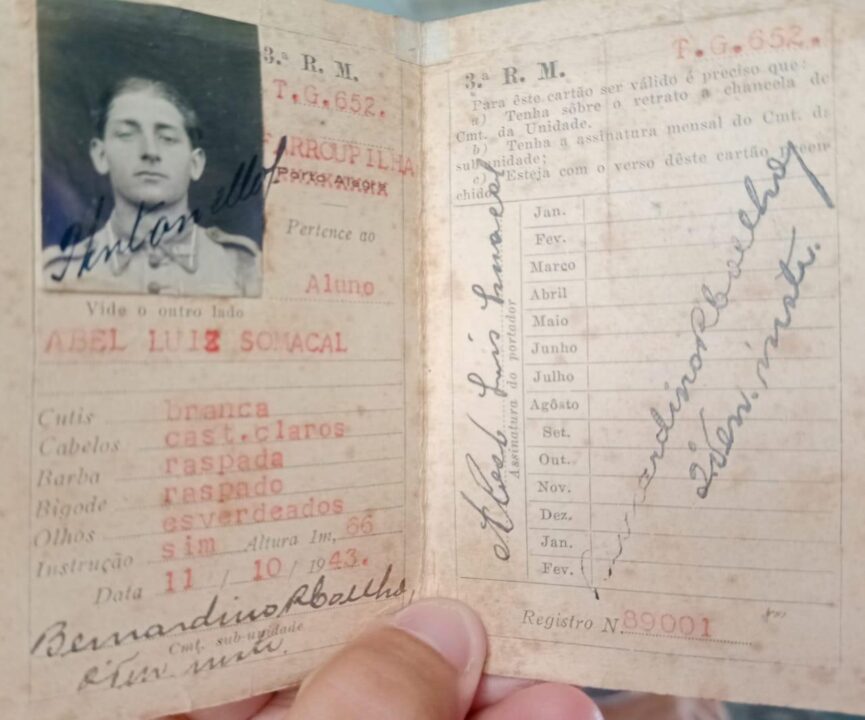 3.ª R. M.
T.G.652.
FARROUPILHA
Porto Alegre
Pertence ao
Aluno
Vide o outro lado
ABEL LUIZ SOMACAL
Cutis branca
Cabelos cast.claros
Barba raspada
Bigode raspado
Olhos esverdeados
Instrução sim Altura 1m, 66
Data 11 / 10 / 1943.
Bernardino R Coelho
Cmt. sub-unidade
2º Ten. instr.
3.ª R. M. T.G.652.
Para êste cartão ser válido é preciso que:
a) Tenha sôbre o retrato a chancela do
Cmt. da Unidade.
b) Tenha a assinatura mensal do Cmt. da
sub unidade;
c) Esteja com o verso dêste cartão preen
chido
Abel Luis Somacal
Assinatura do portador
Jan.
Fev.
Março
Abril
Maio
Junho
Julho
Agôsto
Set.
Out.
Nov.
Dez.
Jan.
Fev.
Bernardino R Coelho
2º Ten. instr.
Registro N. 89001